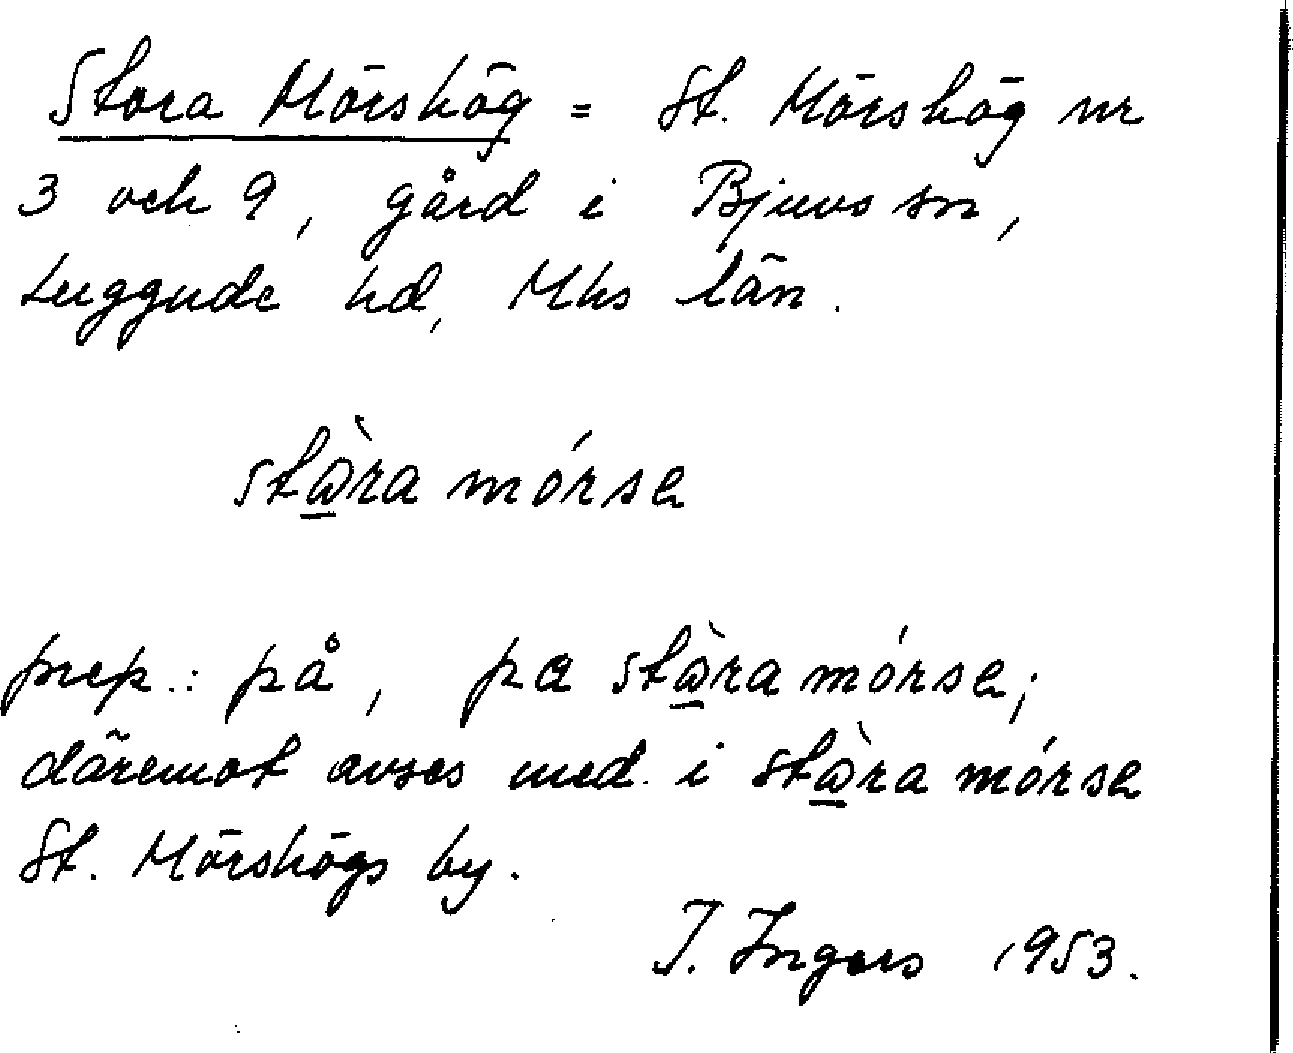 Stora Mörshög = St. Mörshög nr
3 och 9, gård i Bjuvs sn,
Luggude hd, Mhs län.
stὼ̱ra mórse
prep.: på, pa stὼ̱ra mórse;
däremot avses med i stὼ̱ra mórse
St. Mörshögs by.
I. Ingers 1953.